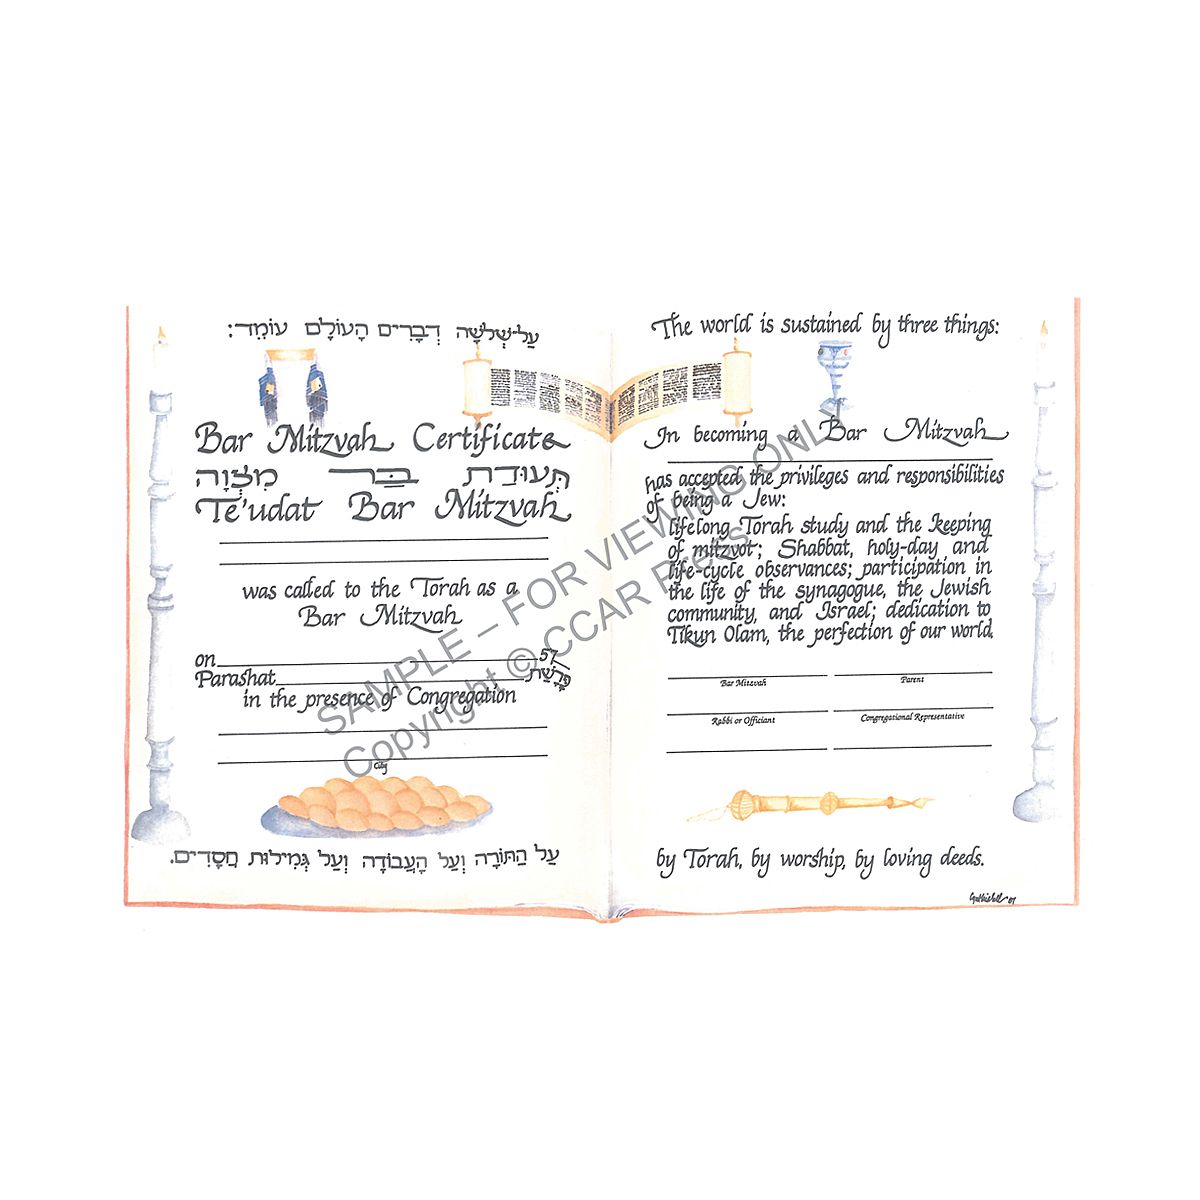 עַל־שְׁלשָׁה דְבָרִים הָעוֹלָם עוֹמֵד:
Bar Mitzvah Certificate
תְּעוּדַת בַּר מִצְוָה
Te'udat Bar Mitzvah
was called to the Torah as a
Bar Mitzvah
on 57
Parashat פָּרָשַׁת
in the presence of Congregation
City
עַל הַתּוֹרָה וְעַל הָעֲבוֹדָה וְעַל גְּמִילוּת חֲסָדִים.
The world is sustained by three things:
In becoming a Bar Mitzvah
has accepted the privileges and responsibilities
of being a Jew:
lifelong Torah study and the keeping
of mitzvot; Shabbat, holy-day and
life-cycle observances; participation in
the life of the synagogue, the Jewish
community, and Israel; dedication to
Tikun Olam, the perfection of our world.
Bar Mitzvah Parent
Rabbi or Officiant Congregational Representative
by Torah, by worship, by loving deeds.
SAMPLE – FOR VIEWING ONLY
Copyright © CCAR Press